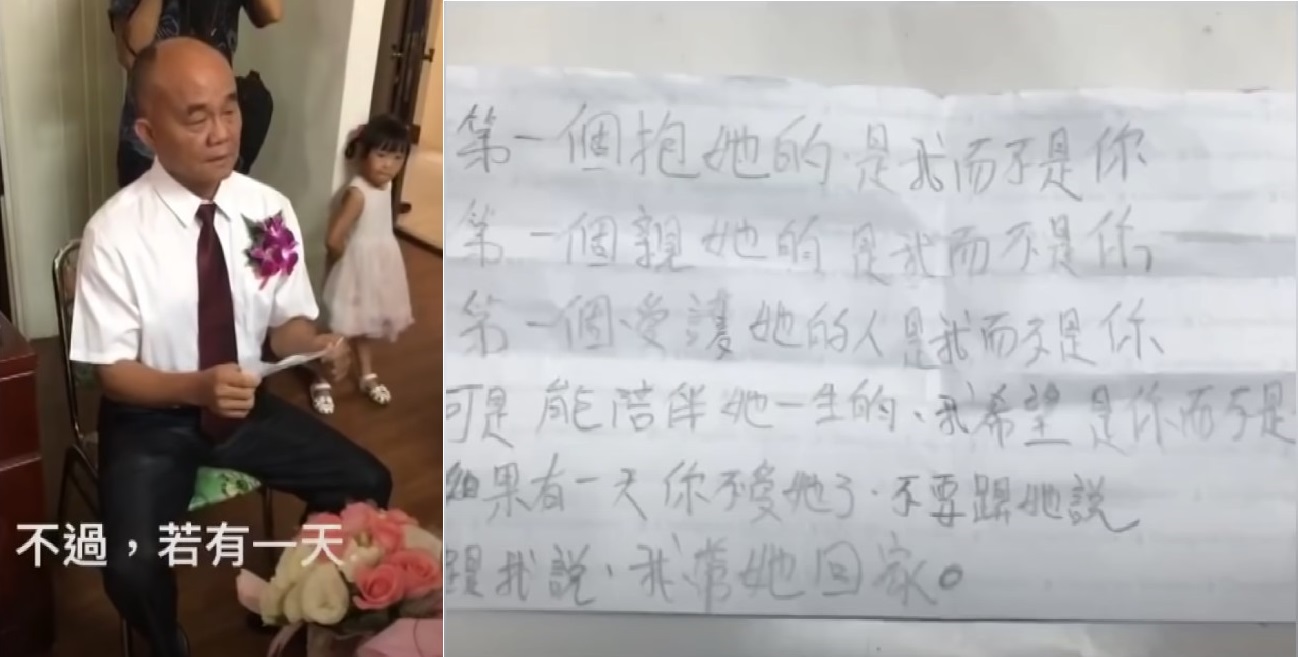 不過，若有一天
第一個抱她的、是我而不是你
第一個親她的是我而不是你,
第一個愛護她的人是我而不是你、
可是能陪伴她一生的、我希望是你而不是
如果有一天你不愛她了、不要跟她說
跟我說、我帶她回家。